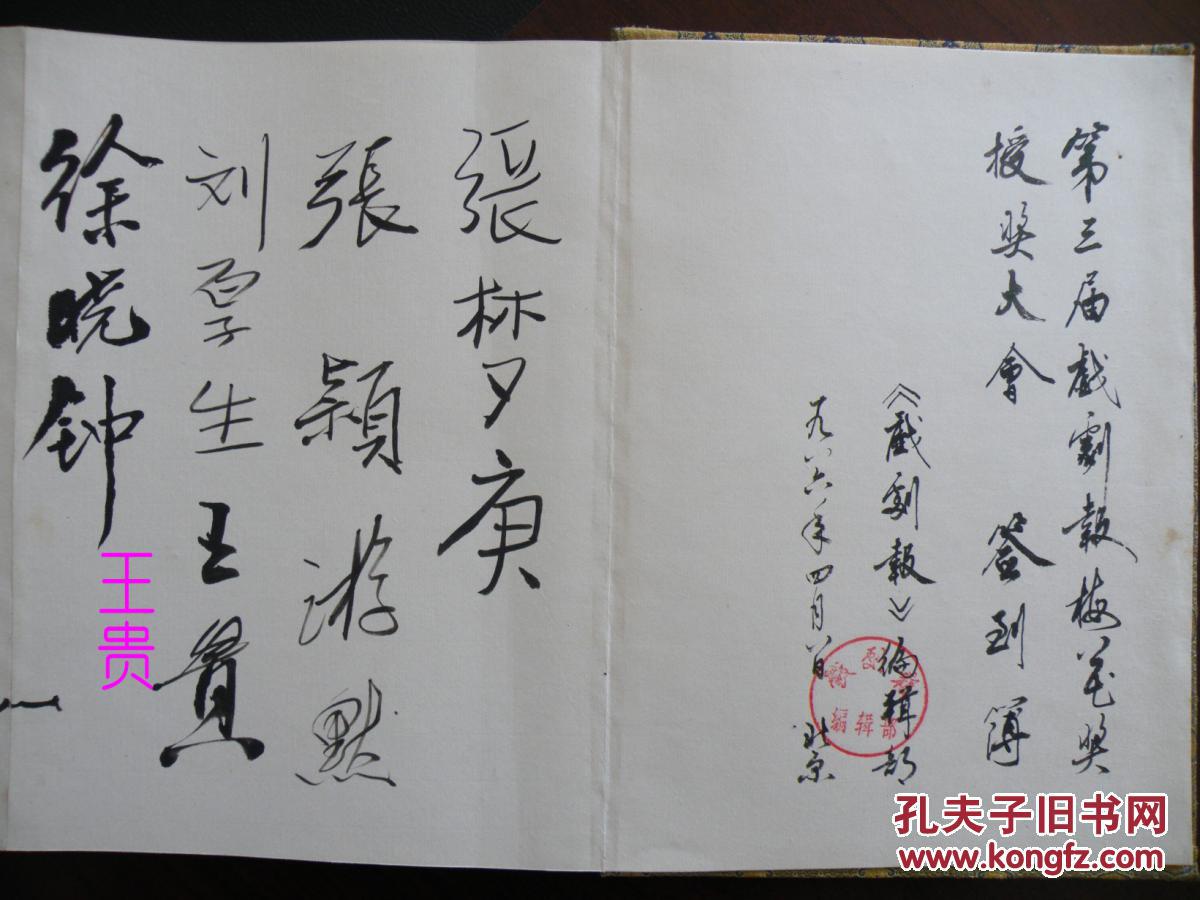 第三届戲劇報梅花奖
授奖大會 签到簿
《戲劇報》编輯部
一九八六年四月八日 北京
编辑部
張梦庚
張穎 游默
刘厚生 王貴
徐晓钟
王贵
孔夫子旧书网
www.kongfz.com